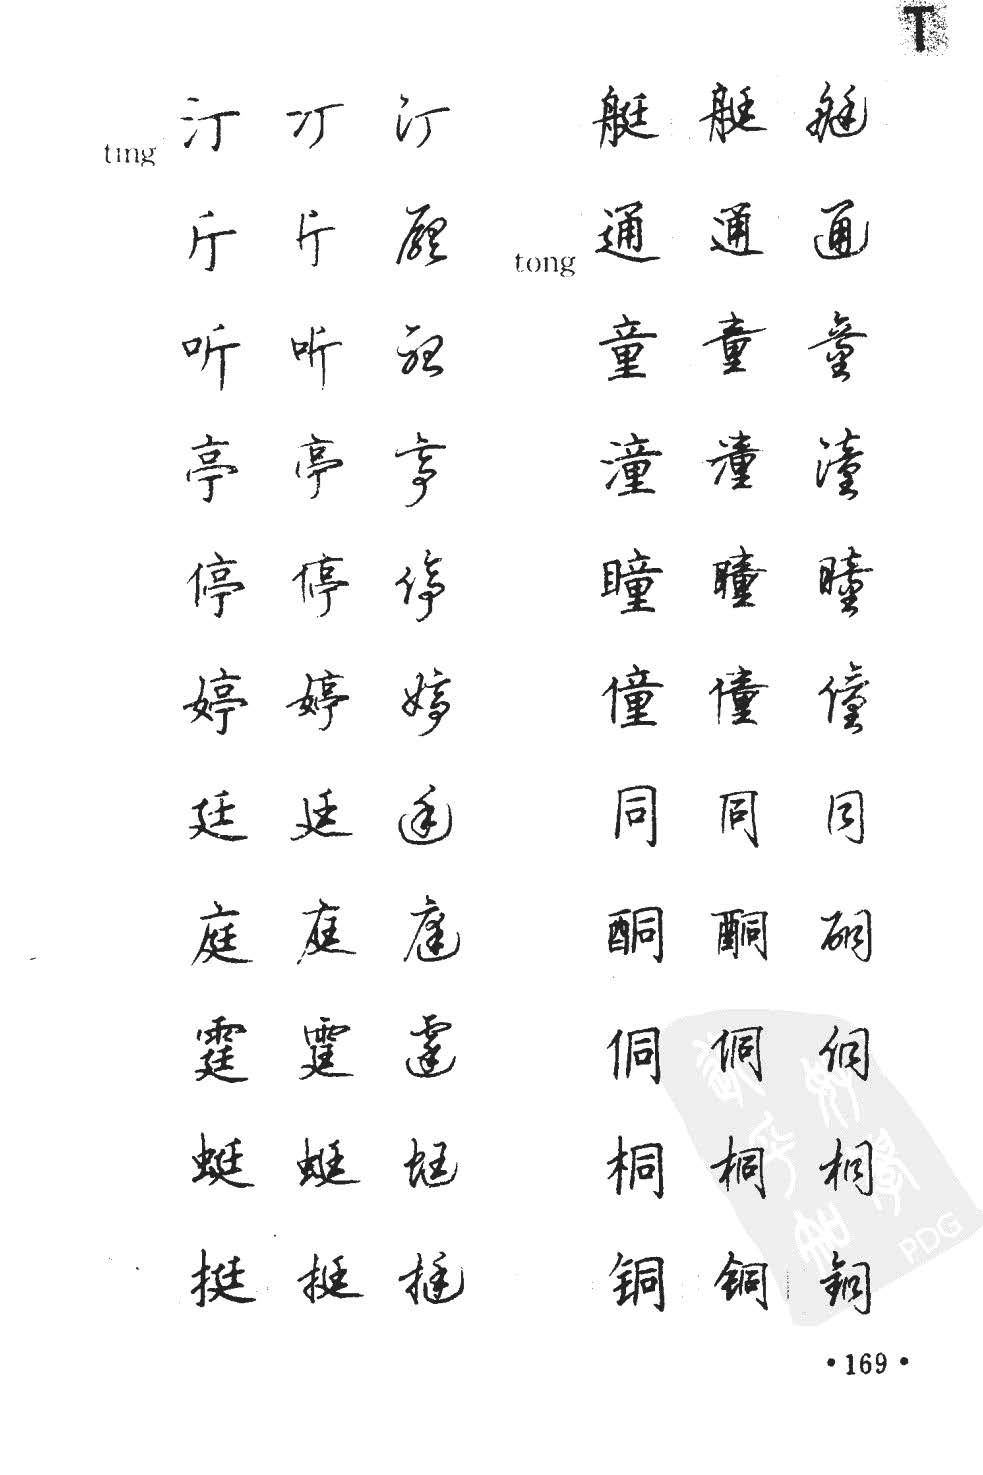 T
ting 汀 汀 汀
厅 厅 廳
听 听 聽
亭 亭 亭
停 停 停
婷 婷 婷
廷 廷 廷
庭 庭 庭
霆 霆 霆
蜓 蜓 蜓
挺 挺 挺
艇 艇 艇
tong 通 通 通
童 童 童
潼 潼 潼
瞳 瞳 瞳
僮 僮 僮
同 同 同
酮 酮 酮
侗 侗 侗
桐 桐 桐
铜 铜 銅
PDG
·169·